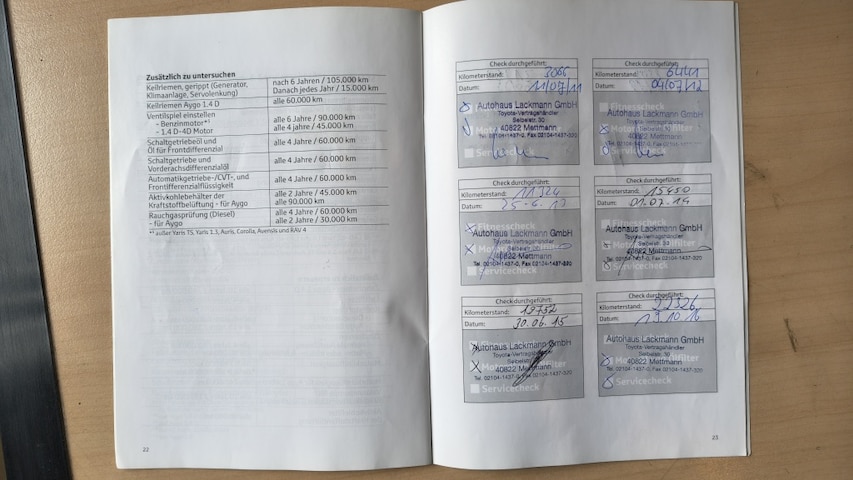 Zusätzlich zu untersuchen
Keilriemen, gerippt (Generator, Klimaanlage, Servolenkung)
nach 6 Jahren / 105.000 km
Danach jedes Jahr / 15.000 km
Keilriemen Aygo 1.4 D
alle 60.000 km
Ventilspiel einstellen
- Benzinmotor*¹
- 1.4 D-4D Motor
alle 6 Jahre / 90.000 km
alle 4 jahre / 45.000 km
Schaltgetriebeöl und
Öl für Frontdifferenzial
alle 4 Jahre / 60.000 km
Schaltgetriebe und
Vorderachsdifferenzialöl
alle 4 Jahre / 60.000 km
Automatikgetriebe-/CVT-, und
Frontifferenzialflüssigkeit
alle 4 Jahre / 60.000 km
Aktivkohlebehälter der
Kraftstoffbelüftung - für Aygo
alle 2 Jahre / 45.000 km
alle 90.000 km
Rauchgasprüfung (Diesel)
- für Aygo
alle 4 Jahre / 60.000 km
alle 2 Jahre / 30.000 km
*¹ außer Yaris TS, Yaris 1.3, Auris, Corolla, Avensis und RAV 4
22
Check durchgeführt:
Kilometerstand: 3066
Datum: 11/07/11
Autohaus Lackmann GmbH
Toyota-Vertragshändler
Seibelstr. 30
40822 Mettmann
Tel. 02104-1437-0, Fax 02104-1437-320
Servicecheck
Check durchgeführt:
Kilometerstand: 6441
Datum: 04/07/12
Fitnesscheck
Autohaus Lackmann GmbH
Toyota-Vertragshändler
Seibelstr. 30
40822 Mettmann
Tel. 02104-1437-0, Fax 02104-1437-320
Servicecheck
Check durchgeführt:
Kilometerstand: 11324
Datum: 25-6.13
Fitnesscheck
Autohaus Lackmann GmbH
Toyota-Vertragshändler
Seibelstr. 30
40822 Mettmann
Tel. 02104-1437-0, Fax 02104-1437-320
Servicecheck
Check durchgeführt:
Kilometerstand: 15450
Datum: 01.07.14
Fitnesscheck
Autohaus Lackmann GmbH
Toyota-Vertragshändler
Seibelstr. 30
40822 Mettmann
Tel. 02104-1437-0, Fax 02104-1437-320
Servicecheck
Check durchgeführt:
Kilometerstand: 19752
Datum: 30.06.15
Autohaus Lackmann GmbH
Toyota-Vertragshändler
Seibelstr. 30
40822 Mettmann
Tel. 02104-1437-0, Fax 02104-1437-320
Servicecheck
Check durchgeführt:
Kilometerstand: 22326
Datum: 19.10.16
Autohaus Lackmann GmbH
Toyota-Vertragshändler
Seibelstr. 30
40822 Mettmann
Tel. 02104-1437-0, Fax 02104-1437-320
Servicecheck
23